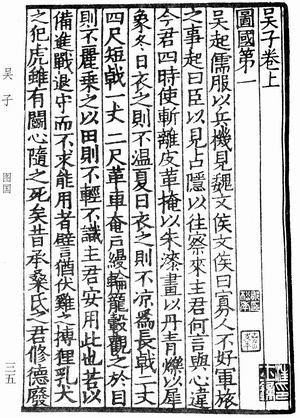 吳子卷上
圖國第一
吳起儒服以兵機見魏文侯文侯曰寡人不好軍旅
之事起曰臣以見占隱以往察來主君何言與心違
今君四時使斬離皮革掩以朱漆畫以丹青爍以犀
象冬日衣之則不温夏日衣之則不凉爲長戟二丈
四尺短戟一丈二尺革車奄戶縵輪籠轂觀之於目
則不麗乘之以田則不輕不識主君安用此也若以
備進戰退守而不求能用者譬猶伏雞之搏狸乳犬
之犯虎雖有鬭心隨之死矣昔承桑氏之君修德廢
吳子
图国
三五